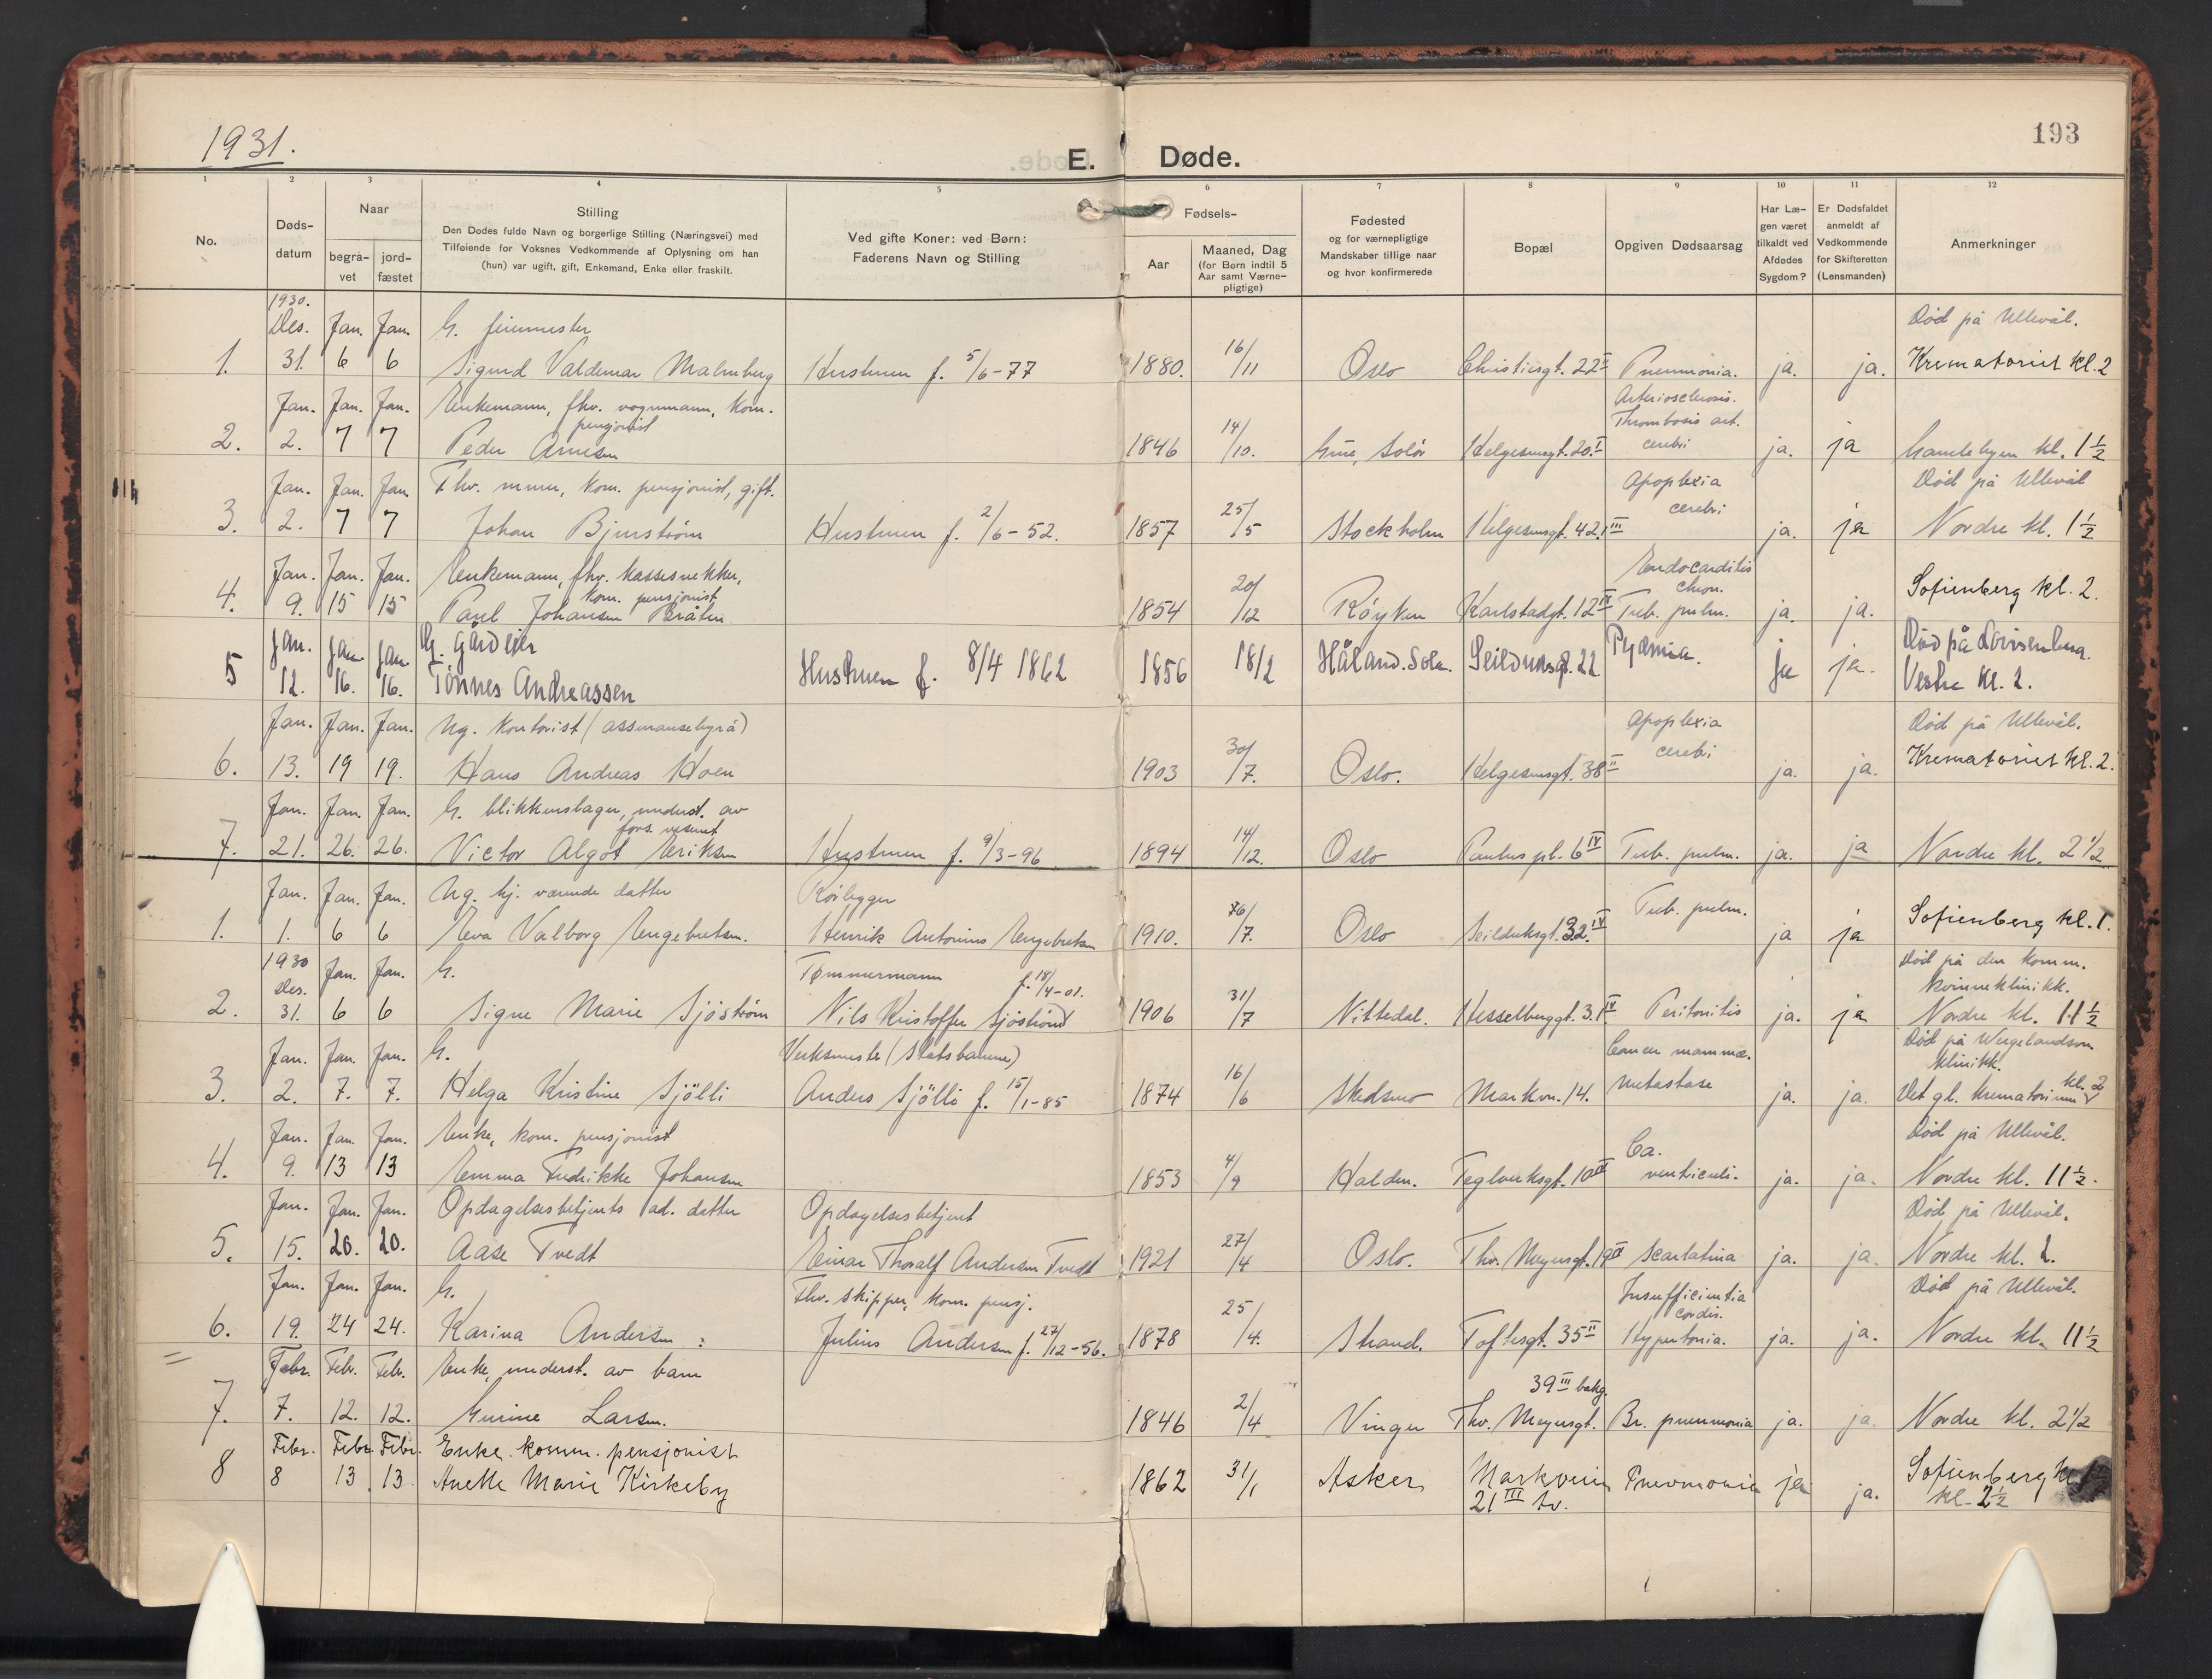 1931.
E. Døde.
193
1 2 3 4 5 6 7 8 9 10 11 12
No.
Døds-
datum
Naar
begra-
vet
jord-
fæstet
Stilling
Den Dødes fulde Navn og borgerlige Stilling (Næringsvei) med
Tilføiende for Voksnes Vedkommende af Oplysning om han
(hun) var ugift, gift, Enkemand, Enke eller fraskilt.
Ved gifte Koner: ved Børn:
Faderens Navn og Stilling
Fødsels-
Aar
Maaned, Dag
(for Børn indtil 5
Aar samt Værne-
pligtige)
Fødested
og for værnepligtige
Mandskaber tillige naar
og hvor konfirmerede
Bopæl
Opgiven Dødsaarsag
Har Læ-
gen været
tilkaldt ved
Afdødes
Sygdom?
Er Dødsfaldet
anmeldt af
Vedkommende
for Skifteretten
(Lensmanden)
Anmerkninger
1930.
Des. Jan. Jan. G. feiermester Død på Ullevål.
1. 31. 6 6 Sigurd Valdemar Malmberg Hustruen f. 5/6-77 1880. 16/11 Oslo Christiesgt. 22 II Pneumonia. ja. ja. Krematoriet kl. 2
Jan. Jan. Jan. Enkemann, fhv. vognmann, kom. Arteriosclerosis.
pensjonist Thrombosis art.
2. 2. 7 7 Peder Arnesen 1846 14/10. Grue, Solør Helgesensgt. 20 I cerebri ja. ja Gamlebyen kl. 1½
Jan. Jan. Jan. Fhv. murer, kom. pensjonist, gift. Apoplexia Død på Ullevål
3. 2. 7 7 Johan Bjurström Hustruen f. 2/6-52. 1857 25/5 Stockholm Helgesensgt. 42 III cerebri ja. ja Nordre kl. 1½
Jan. Jan. Jan. Enkemann, fhv. kassesnekker, Endocarditis
kom. pensjonist chron.
4. 9. 15 15 Paul Johansen Bråten 1854 20/12 Røyken Karlstadgt. 12 IV Tub. pulm. ja. ja. Sofienberg kl. 2.
Jan. Jan. Jan. G. gårdeier Død på Lovisenberg.
5 12. 16. 16. Tønnes Andreassen Hustruen f. 8/4 1862 1856 18/2 Håland. Sola. Seilduksgt. 22 Pyæmia. ja ja. Vestre kl. 2.
Jan. Jan. Jan. Ug. kontorist (assuransebyrå) Apoplexia Død på Ullevål.
6. 13. 19 19. Hans Andreas Hoen 1903 30/7. Oslo. Helgesensgt. 38 II cerebri ja. ja. Krematoriet kl. 2.
Jan. Jan. Jan. G. blikkenslager, underst. av
fors. vesenet
7. 21. 26. 26. Victor Algot Eriksen Hustruen f. 9/3-96 1894 14/12. Oslo Paulus pl. 6 IV Tub. pulm. ja. ja Nordre kl. 2½
Jan. Jan. Jan. Ug. hj. værende datter Rørlegger
1. 1. 6 6 Eva Valborg Engebretsen. Henrik Antonius Engebretsen 1910. 26/7. Oslo Seilduksgt. 32 IV Tub. pulm. ja ja Sofienberg kl. 1.
1930 Død på den komm.
Des. Jan. Jan. G. Tømmermann f. 18/4-01. kvinneklinikk.
2. 31. 6 6 Signe Marie Sjöström Nils Kristoffer Sjöström 1906 31/7 Nittedal. Hesselberggt. 3 IV Peritonitis ja. ja Nordre kl. 11½
Jan. Jan. Jan. G. Verksmester (Statsbanene) Cancer mammæ. Død på Wergelandsvn.
klinikk.
3. 2. 7. 7. Helga Kristine Sjölli Anders Sjölli f. 15/1-85 1874 16/6 Skedsmo Markvn. 14. metastase ja. ja. Det gl. Krematorium kl. 2
Jan. Jan. Jan. Enke, kom. pensjonist Død på Ullevål.
4. 9. 13 13 Emma Fredrikke Johansen 1853 4/9 Halden. Teglverksgt. 10 III Ca. ventriculi. ja. ja. Nordre kl. 11½.
Jan. Jan. Jan. Opdagelsesbetjents ad. datter Opdagelsesbetjent Død på Ullevål.
5. 15. 20. 20. Aase Tvedt Einar Thoralf Andersen Tvedt 1921 27/4 Oslo. Thv. Meyersgt. 19 III Scarlatina ja. ja. Nordre kl. 2.
Jan. Jan. Jan. G. Fhv. skipper, kom. pensj. Insufficientia Død på Ullevål.
cordis.
6. 19. 24 24. Karina Andersen Julius Andersen f. 27/12-56. 1878 25/4. Strand. Toftesgt. 35 II Hypertonia. ja. ja. Nordre kl. 11½
Febr. Febr. Febr. Enke, underst. av barn 39 III bakg.
7. 7. 12. 12. Gurine Larsen. 1846 2/4 Vinger Thv. Meyersgt. Br. pneumonia ja. ja. Nordre kl. 2½
Febr. Febr. Febr. Enke. komm. pensjonist
8 8 13 13. Anette Marie Kirkeby 1862 31/1 Asker Markveien Pneumonia ja ja. Sofienberg
21 III tv. kl. 2½